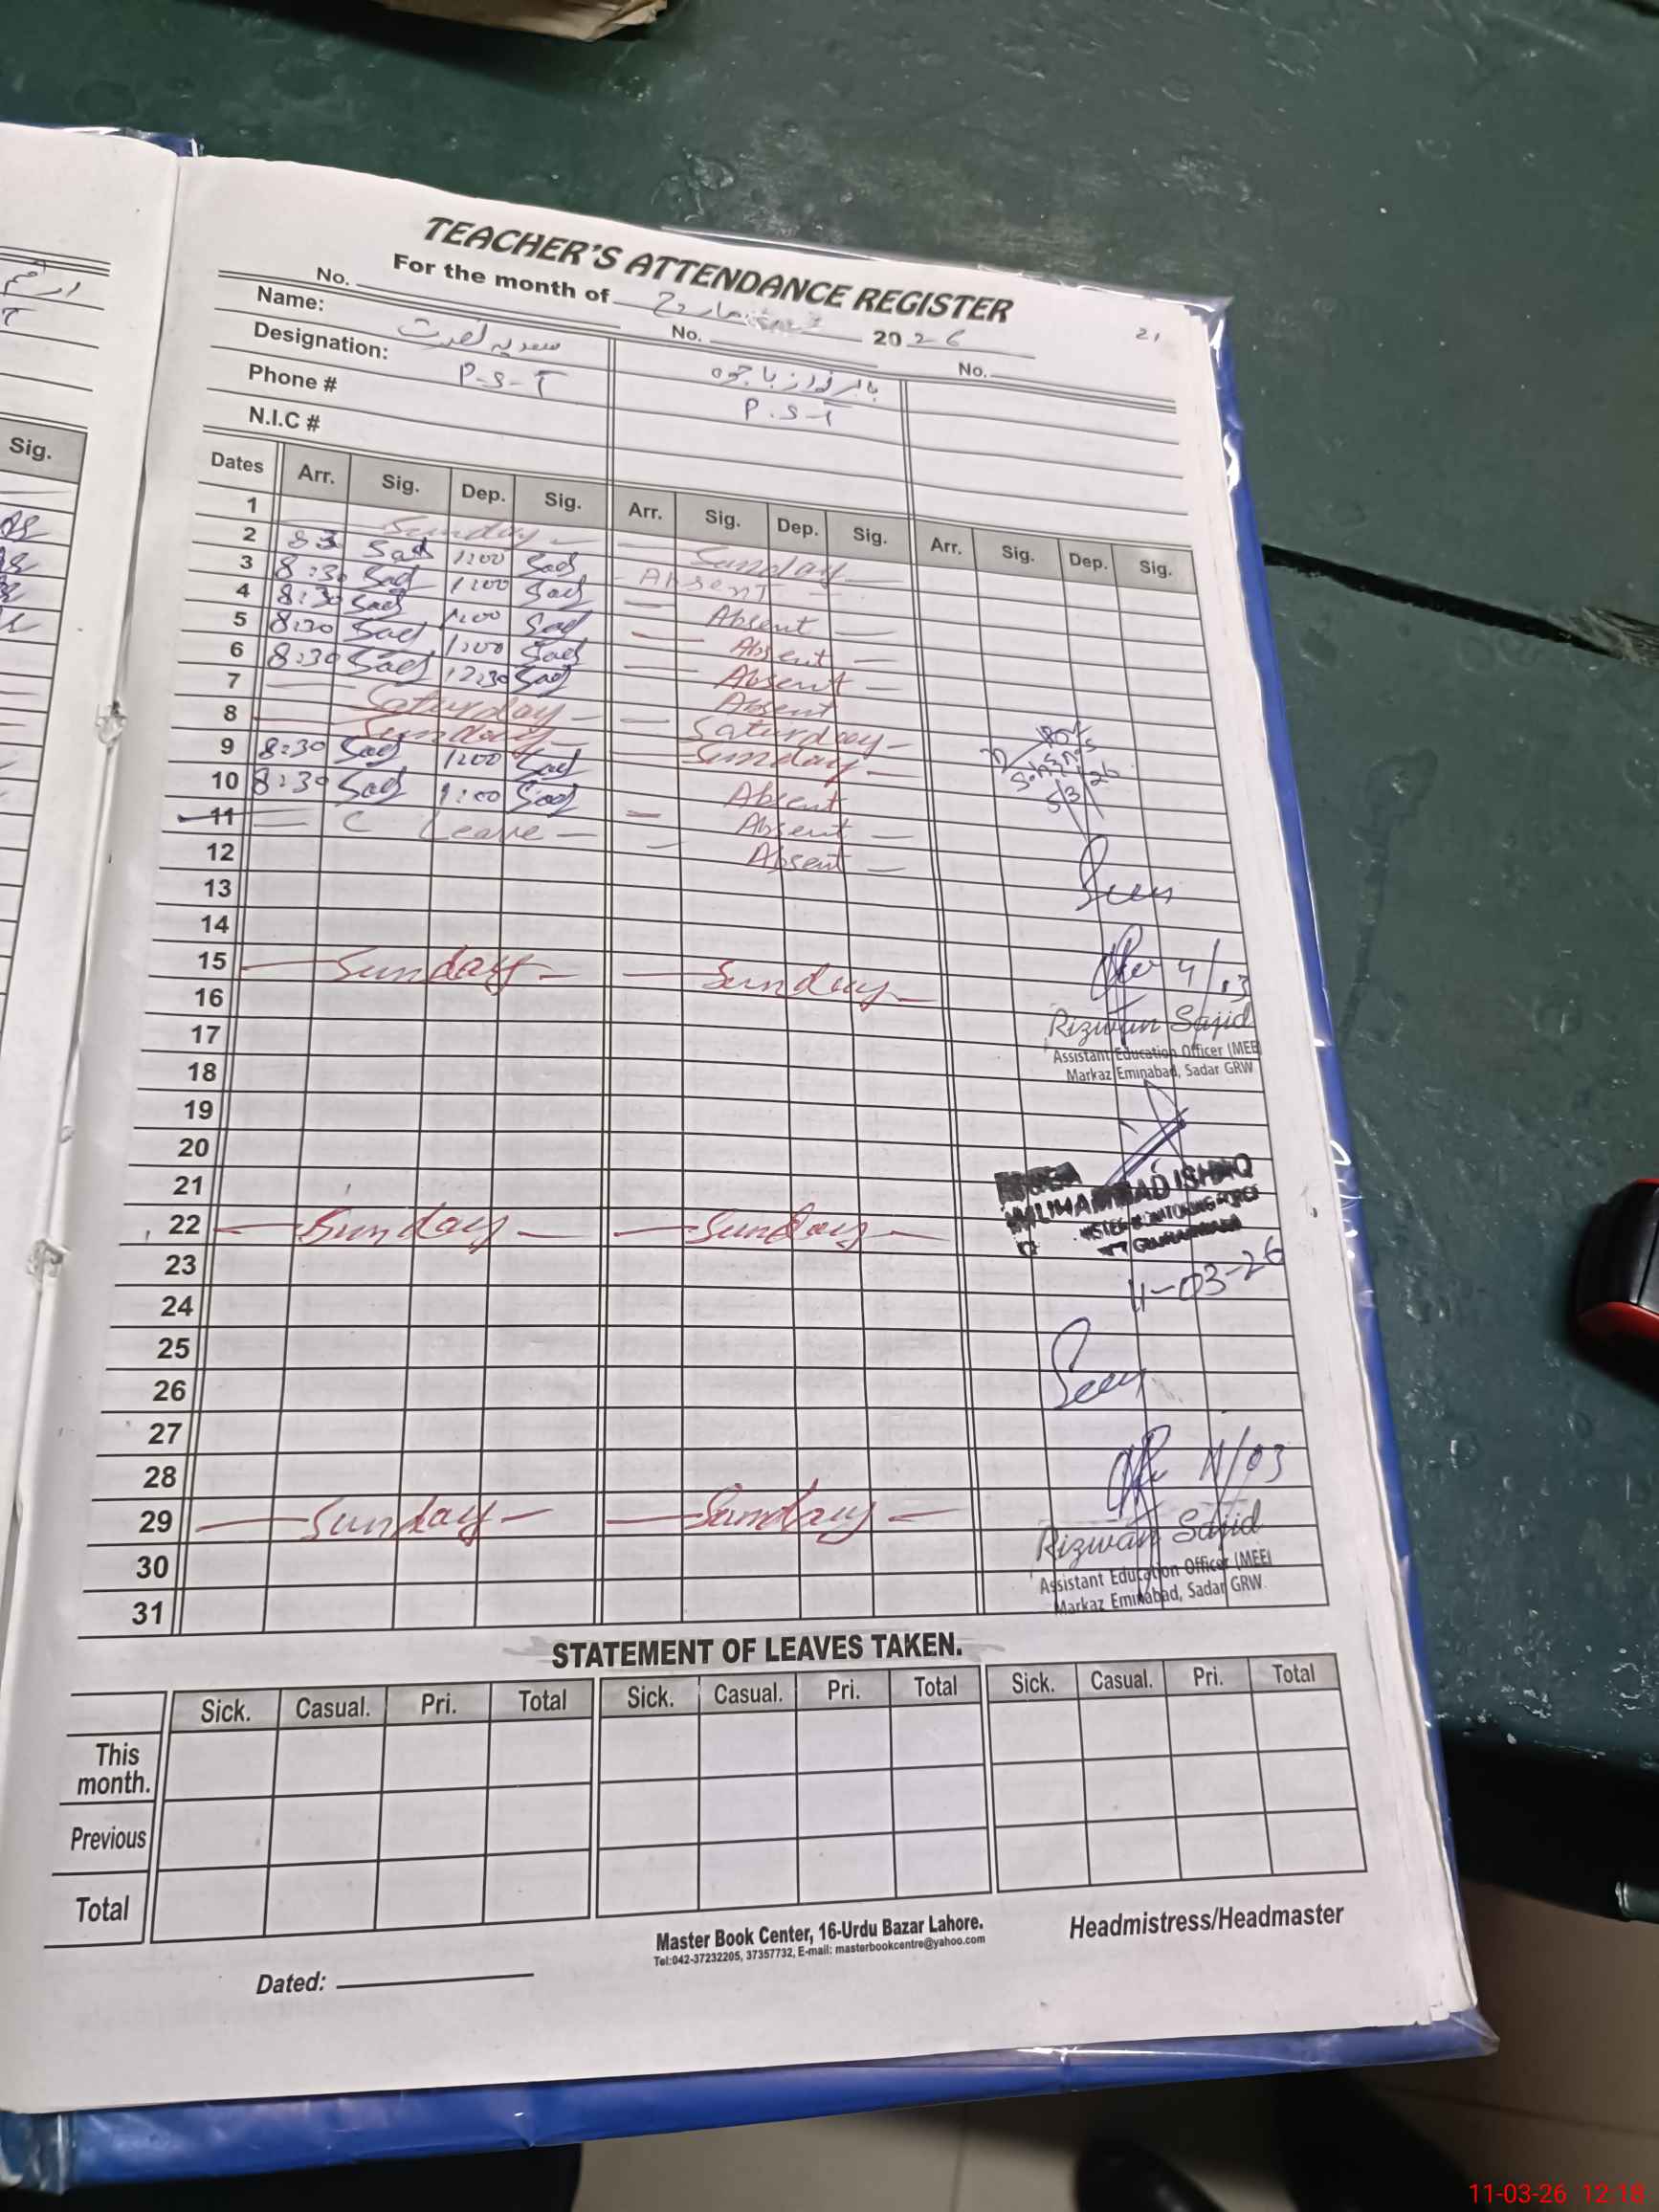 TEACHER'S ATTENDANCE REGISTER
For the month of مارچ 2026
21
No. No. No.
Name: سعدیہ نصرت بابر نواز باجوہ
Designation: P-S-T P.S-T
Phone #
N.I.C #
Sig.
Dates Arr. Sig. Dep. Sig. Arr. Sig. Dep. Sig. Arr. Sig. Dep. Sig.
1 Sunday Sunday
2 83 Sad 1:00 Sad Absent
3 8:30 Sad 1:00 Sad Absent
4 8:30 Sad 1:00 Sad Absent
5 8:30 Sad 1:00 Sad Absent
6 8:30 Sad 12:30 Sad Absent
7 Saturday Saturday
8 Sunday Sunday
9 8:30 Sad 1:00 Sad Absent
10 8:30 Sad 1:00 Sad Absent
11 C Leave Absent
12
13
14
15 Sunday Sunday
16
17
18
19
20
21
22 Sunday Sunday
23
24
25
26
27
28
29 Sunday Sunday
30
31
5/3/26
Seen
4/03
Rizwan Sajid
Assistant Education Officer (MEE)
Markaz Eminabad, Sadar GRW
MUHAMMAD ISHAQ
11-03-26
Seen
11/03
Rizwan Sajid
Assistant Education Officer (MEE)
Markaz Eminabad, Sadar GRW.
STATEMENT OF LEAVES TAKEN.
Sick. Casual. Pri. Total Sick. Casual. Pri. Total Sick. Casual. Pri. Total
This month.
Previous
Total
Master Book Center, 16-Urdu Bazar Lahore.
Tel:042-37232205, 37357732, E-mail: masterbookcentre@yahoo.com
Headmistress/Headmaster
Dated:
11-03-26 12:18